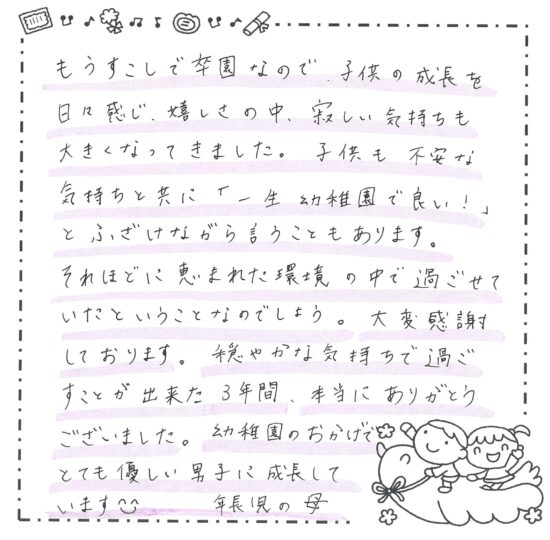 もうすこしで卒園なので、子供の成長を
日々感じ、嬉しさの中、寂しい気持ちも
大きくなってきました。子供も不安な
気持ちと共に「一生幼稚園で良い!」
とふざけながら言うこともあります。
それほどに恵まれた環境の中で過ごせて
いたということなのでしょう。大変感謝
しております。穏やかな気持ちで過ご
すことが出来た3年間、本当にありがとう
ございました。幼稚園のおかげで
とても優しい男子に成長して
います 年長児の母